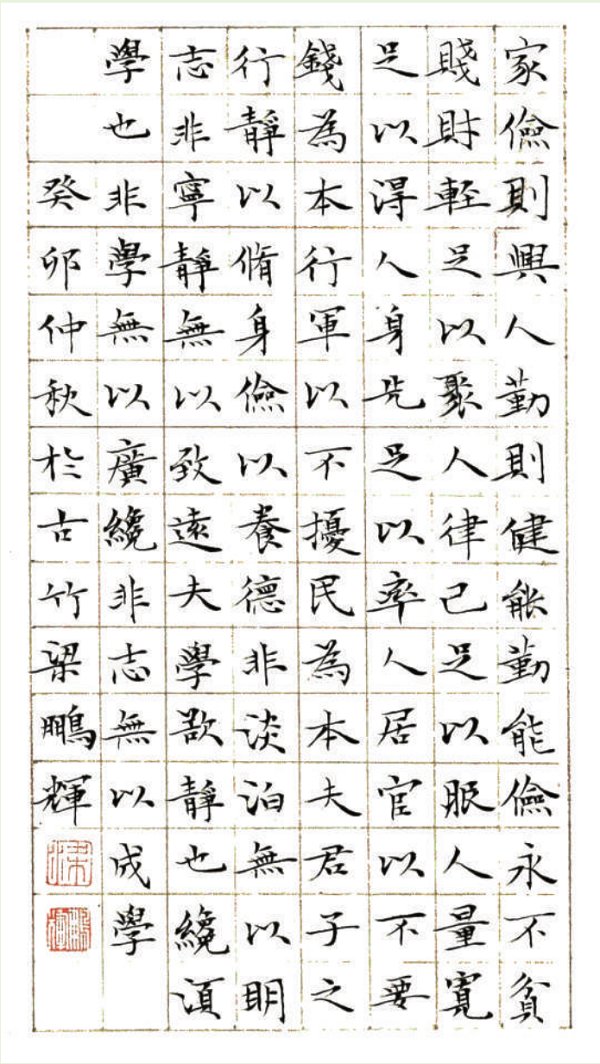 家儉則興人勤則健能勤能儉永不貧
賤財輕足以聚人律己足以服人量寬
足以得人身先足以率人居官以不要
錢為本行軍以不擾民為本夫君子之
行靜以脩身儉以養德非淡泊無以明
志非寧靜無以致遠夫學欲靜也纔湏
學也非學無以廣纔非志無以成學
癸卯仲秋於古竹梁鵬輝
梁
鵬輝